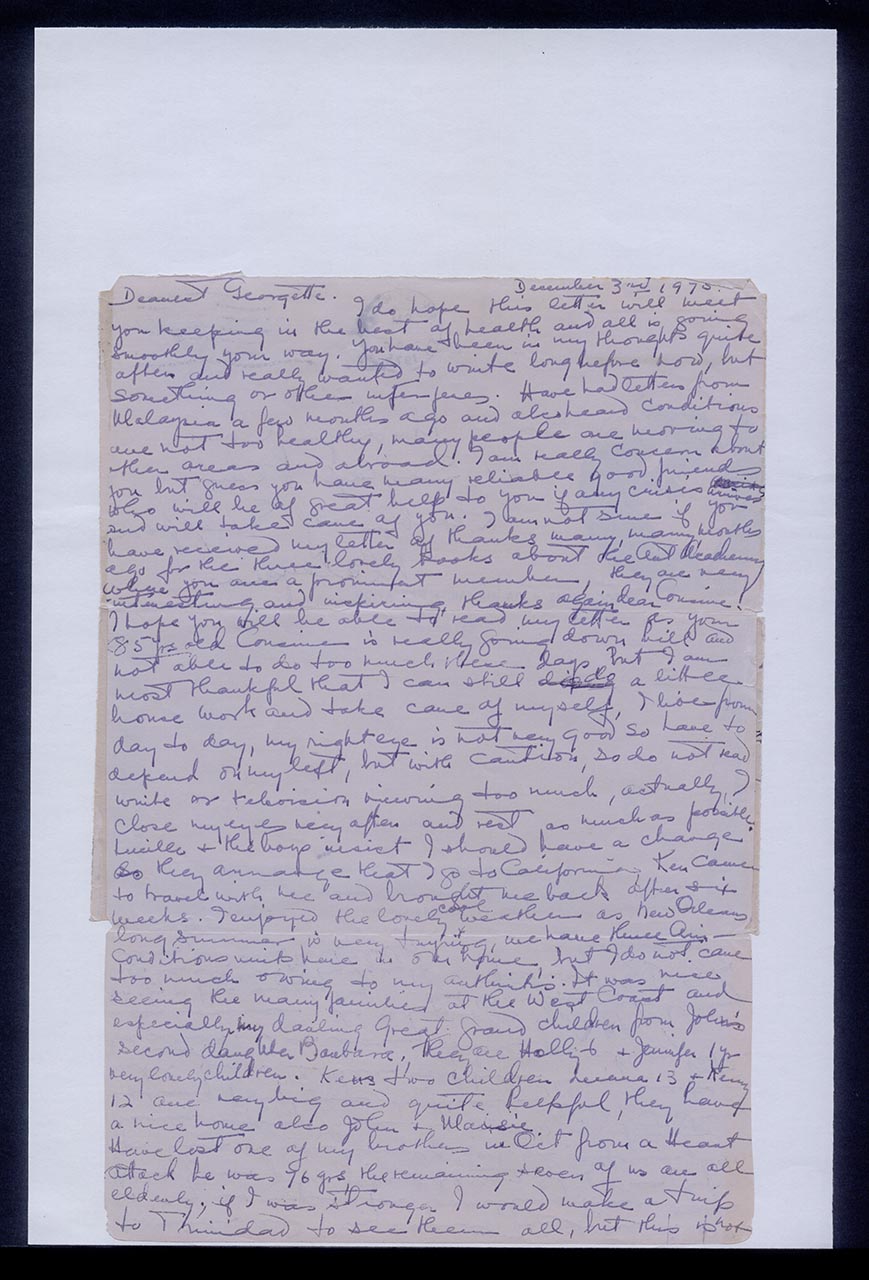 December 3rd 1975.
Dearest Georgette. I do hope this letter will meet
you keeping in the best of health and all is going
smoothly your way. You have been in my thoughts quite
often and really wanted to write long before now, but
something or other interferes. Have had letters from
Malaysia a few months ago and also heard conditions
are not too healthy, many people are moving to
other areas and abroad. I am really concern about
you but guess you have many reliable good friends
who will be of great help to you if any crisis arrives
and will take care of you. I am not sure if you
have received my letter of thanks many, many months
ago for the three lovely books about the Art Academy
where you are a prominent member, they are very
interesting and inspiring thanks again dear Cousine.
I hope you will be able to read my letter as your
85 yrs old Cousine is really going down hill and
not able to do too much these days but I am
most thankful that I can still do a little
house work and take care of myself, I live from
day to day, my right eye is not very good so have to
depend on my left, but with caution, so do not read
write or television viewing too much, actually, I
close my eyes very often and rest as much as possible.
Lucille + the boys insist I should have a change
so they arrange that I go to California. Ken came
to travel with me and brought me back after six
weeks. I enjoyed the lovely cool weather as New Orleans
long summer is very trying, we have three Air-
Conditions units here in our home, but I do not care
too much owing to my arthritis. It was nice
seeing the many families at the West Coast and
especially my darling Great Grand children from John's
second daughter Barbara, they are Holly 6 + Jennifer 1 yr
very lovely children. Kens two children 13 + Kenny
12 are very big and quite helpful, they have
a nice home also John +
Have lost one of my brothers in Oct from a Heart
attack he was 76 yrs, the remaining seven of us are all
elderly, if I was stronger I would make a trip
to Trinidad to see them all, but this is not